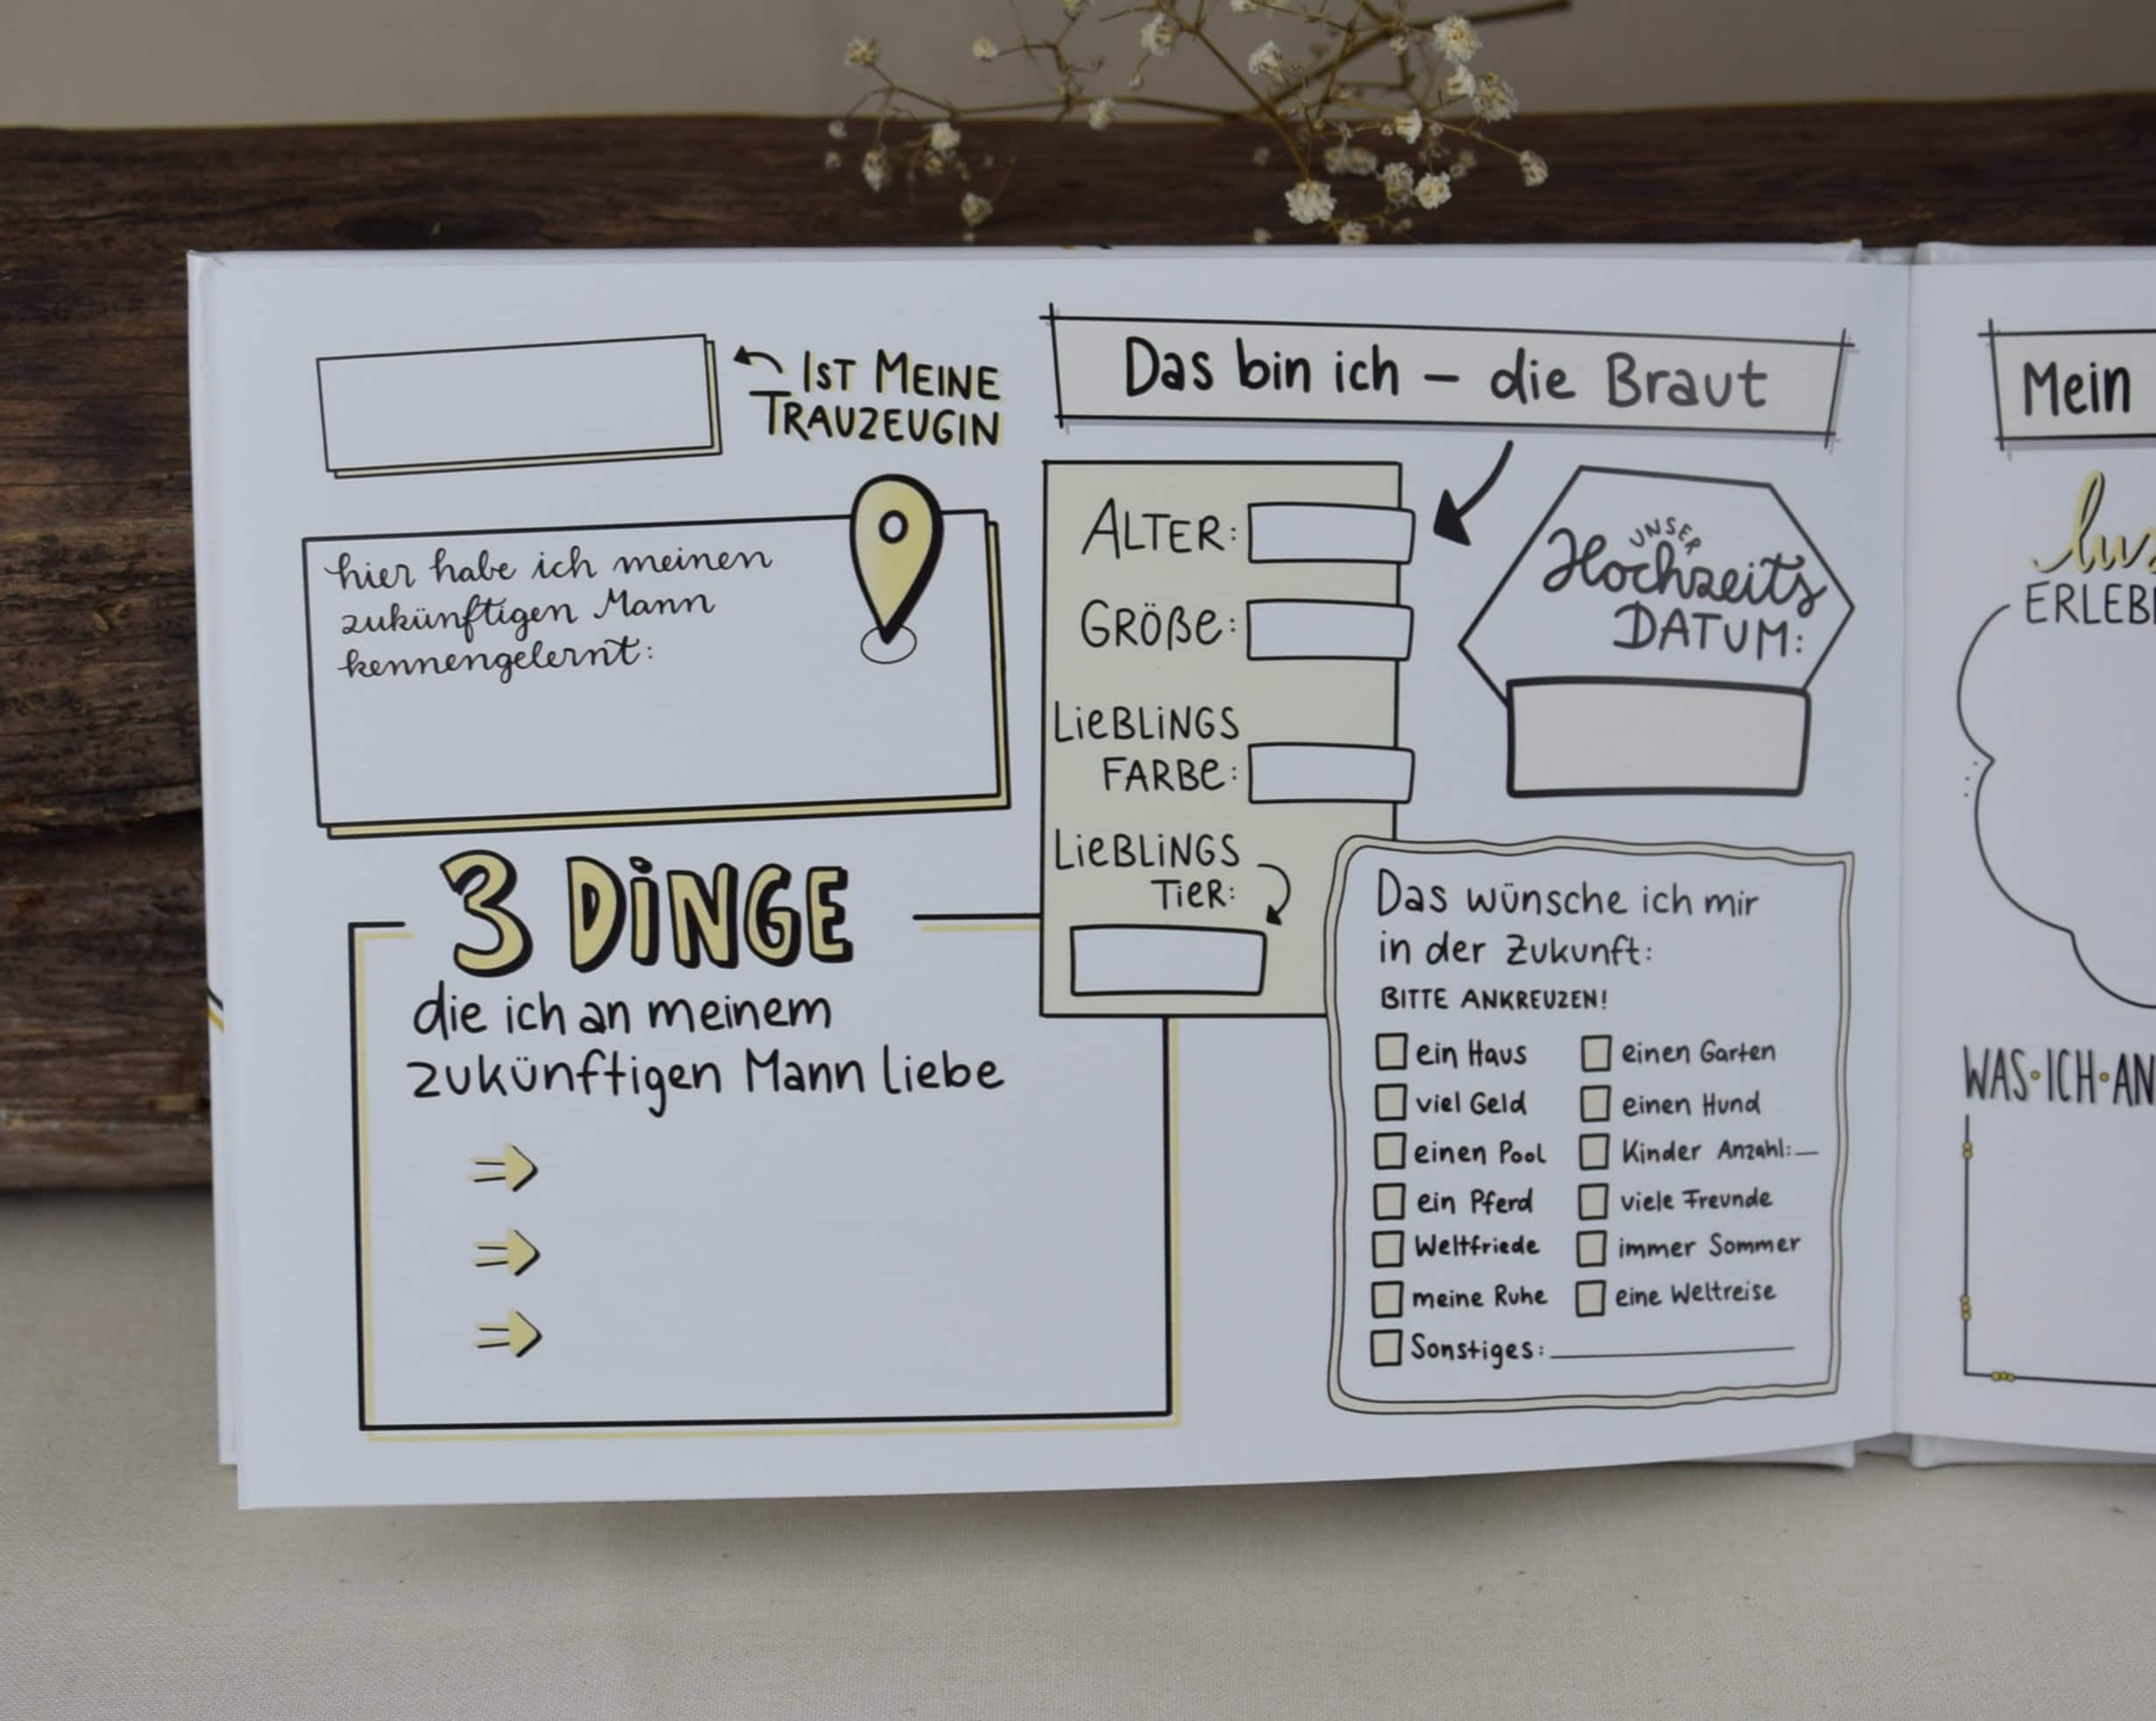 IST MEINE
TRAUZEUGIN
hier habe ich meinen
zukünftigen Mann
kennengelernt:
3 DINGE
die ich an meinem
zukünftigen Mann liebe
Das bin ich – die Braut
ALTER:
GRÖßE:
LIEBLINGS
FARBE:
LIEBLINGS
TIER:
UNSER
Hochzeits
DATUM:
Das wünsche ich mir
in der Zukunft:
BITTE ANKREUZEN!
ein Haus einen Garten
viel Geld einen Hund
einen Pool Kinder Anzahl:
ein Pferd viele Freunde
Weltfriede immer Sommer
meine Ruhe eine Weltreise
Sonstiges:
Mein
WAS•ICH•AN